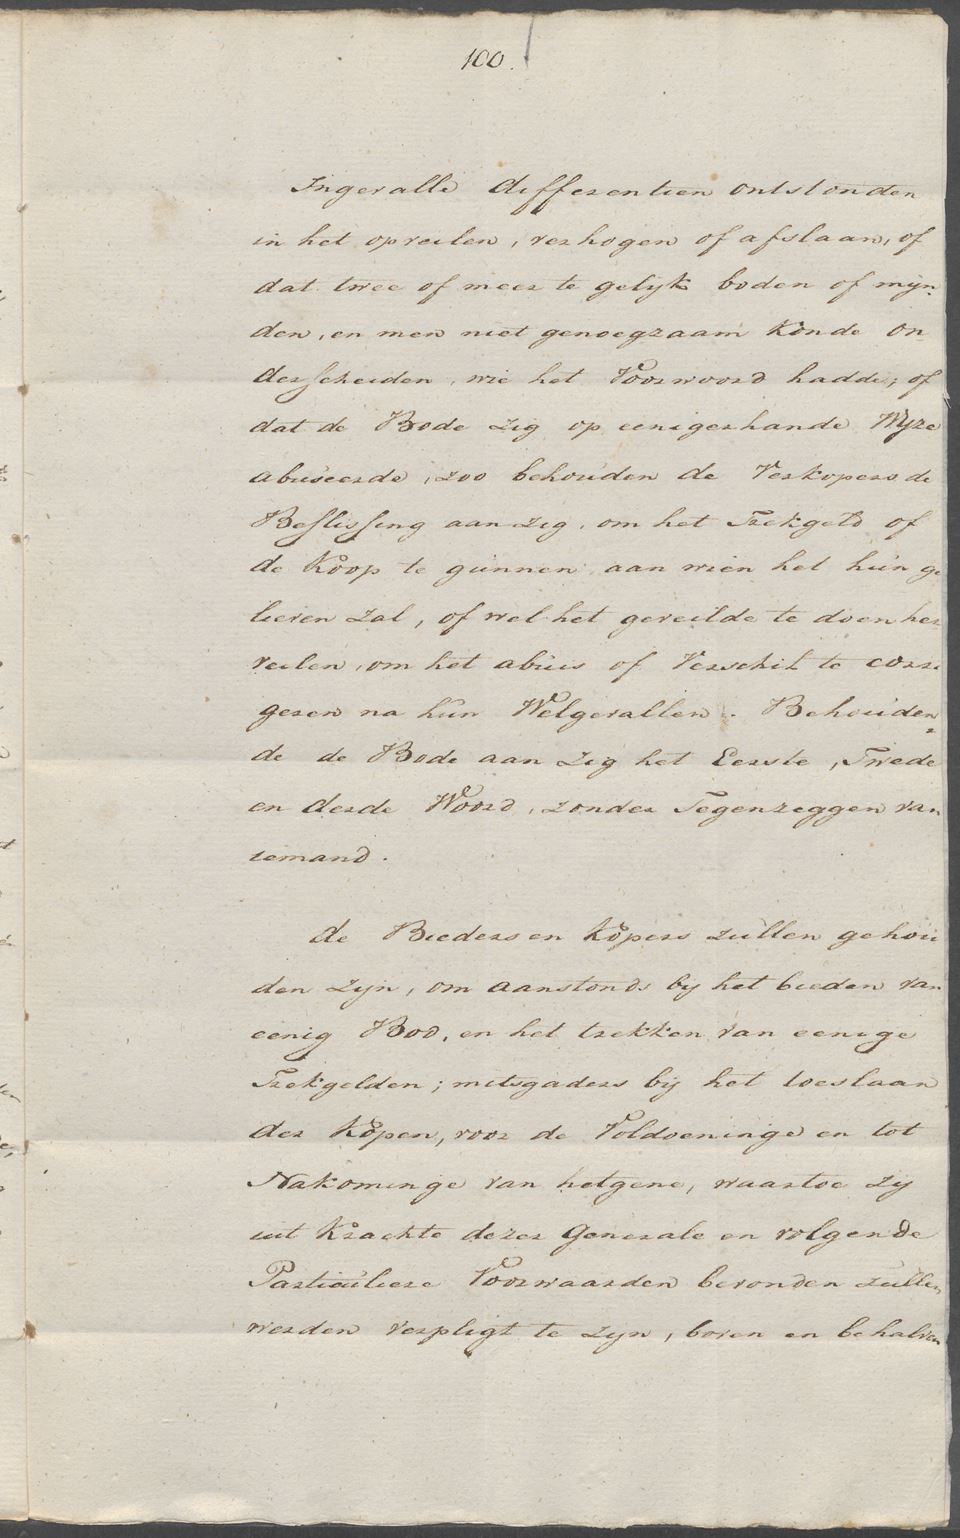 100.
Ingevalle differentien ontstonden
in het opveilen, verhogen of afslaan, of
dat twee of meer te gelyk boden of mijn-
den, en men niet genoegzaam konde on
derscheiden, wie het Voorwoord hadde; of
dat de Bode zig op eenigerhande Wyze
abuseerde, zoo behouden de Verkopers de
Beslissing aan zig, om het Trekgeld of
de Koop te gunnen aan wien het hun ge
lieven zal, of wel het geveilde te doen her-
veilen, om het abuis of Verschil te corri
geren na hun Welgevallen. Behouden-
de de Bode aan zig het Eerste, Twede
en derde Woord, zonder Tegenzeggen van
iemand.
de Bieders en Kopers zullen gehou
den zyn, om aanstonds by het bieden van
eenig Bod, en het trekken van eenige
Trekgelden; mitsgaders bij het toeslaan
der Kopen, voor de Voldoeninge en tot
Nakominge van hetgene, waartoe zij
uit Krachte dezer Generale en volgende
Particuliere Voorwaarden bevonden zullen
werden verpligt te zyn, boven en behalven